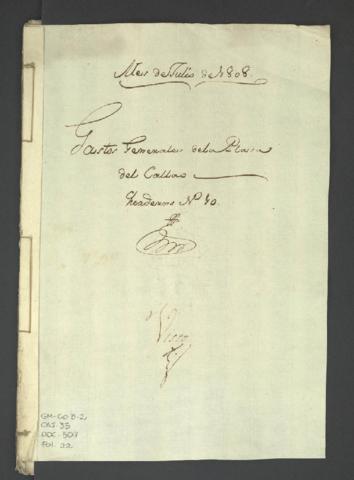 Mes de Julio de 1808
Gastos Generales de la Plaza
del Callao
Quaderno Nº 10.
Visto
GM-CO 8-2
CAJ-35
DOC-507
Fol. 22